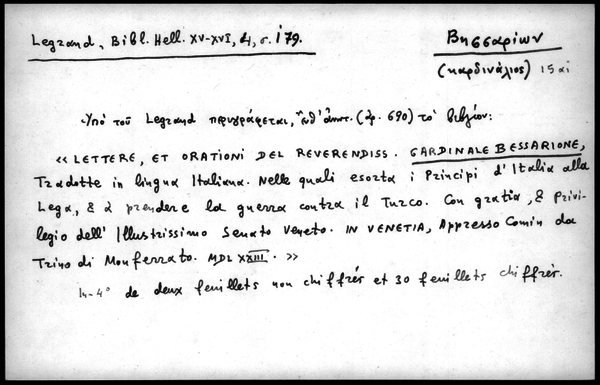 Legrand, Bibl. Hell. XV-XVI, 4, σ. 179.
Βησσαρίων
(καρδινάλιος) 15 αἰ
Ὑπὸ τοῦ Legrand περιγράφεται, (ἀρ. 690) τὸ βιβλίον:
« LETTERE, ET ORATIONI DEL REVERENDISS. CARDINALE BESSARIONE,
Tradotte in lingua Italiana. Nelle quali esorta i Principi d'Italia alla
Lega, & à prendere la guerra contra il Turco. Con gratia, & Privi-
legio dell' Illustrissimo Senato Veneto. IN VENETIA, Appresso Comin da
Trino di Monferrato. MDLXXIII. »
In-4° de deux feuillets non chiffrés et 30 feuillets chiffrés.